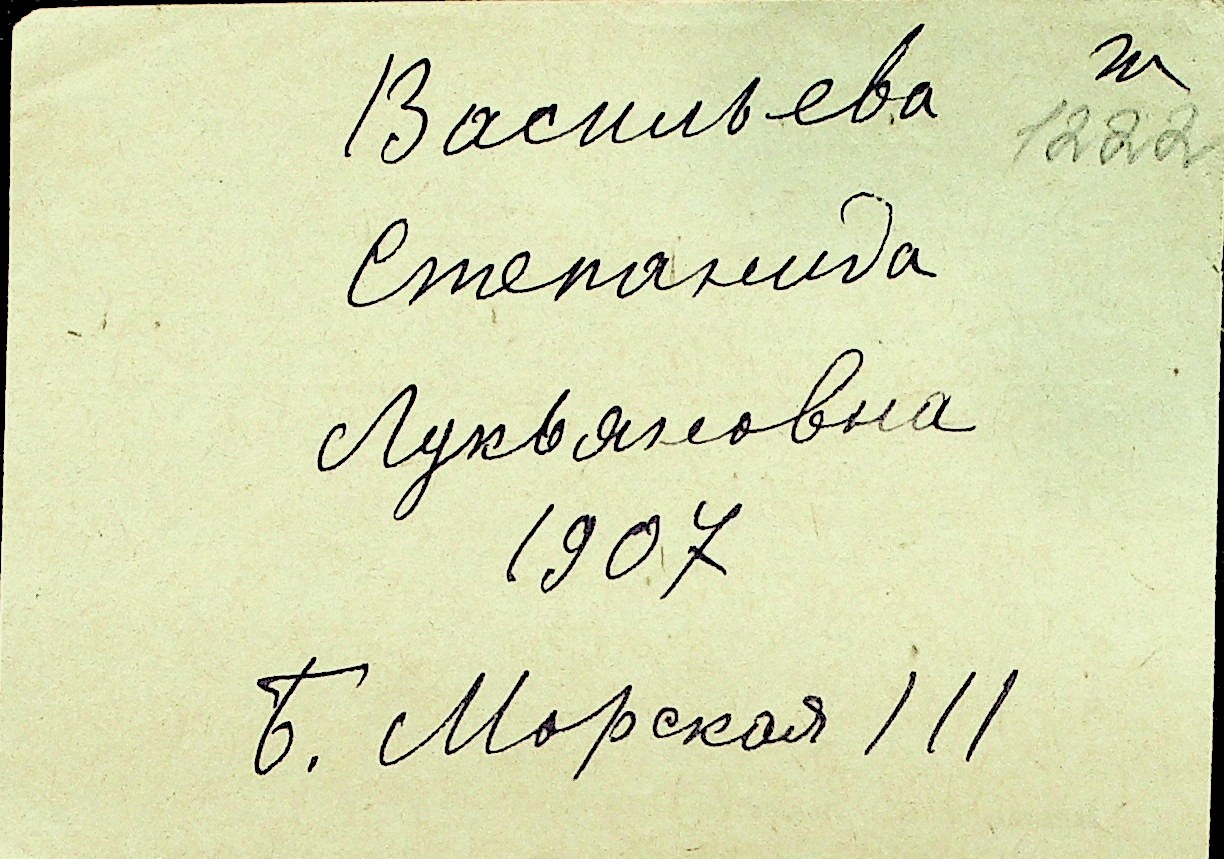 Васильева ж
1222
Степанида
Лукьяновна
1907
Б. Морская 111